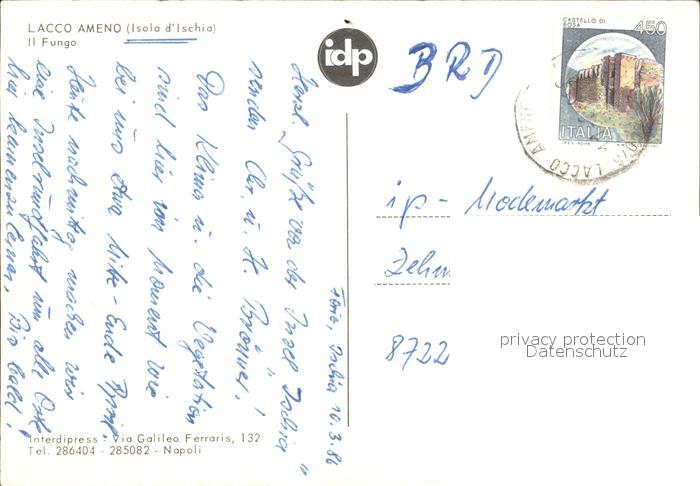 LACCO AMENO (Isola d'Ischia)
Il Fungo
idp
BRD
CASTELLO DI
ROSA
450
ITALIA
LACCO AM
ip - Modemarkt
Zehn
8722
privacy protection
Datenschutz
Forio, Ischia 10.3.86
Herzl. Grüße von der Insel "Ischia"
senden Chr. u. H. Brönner!
Das Klima u. die Vegetation
sind hier im Moment wie
bei uns etwa Mitte - Ende
Heute nachmittag machen wir
eine Inselrundfahrt um alle Orte
hier kennenzulernen, Bis bald!
Interdipress - Via Galileo Ferraris, 132
Tel. 286404 - 285082 - Napoli